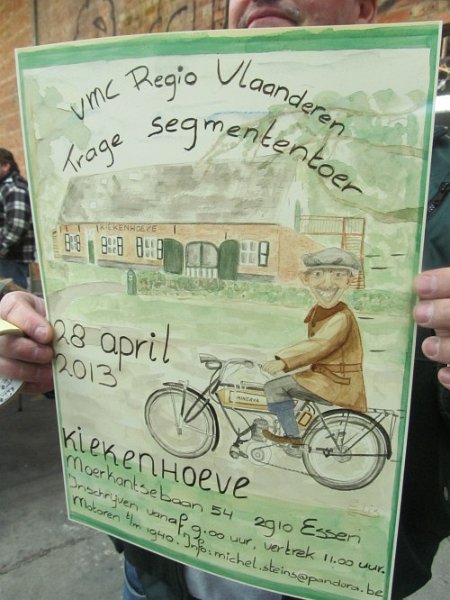 VMC Regio Vlaanderen
Trage segmententoer
KIEKENHOEVE
28 april
2013
MINERVA
KIEKENHOEVE
Moerkantsebaan 54 2910 Essen
Inschrijven vanaf 9.00 uur, vertrek 11.00 uur.
Motoren t/m 1940. Info: michel.steins@pandora.be